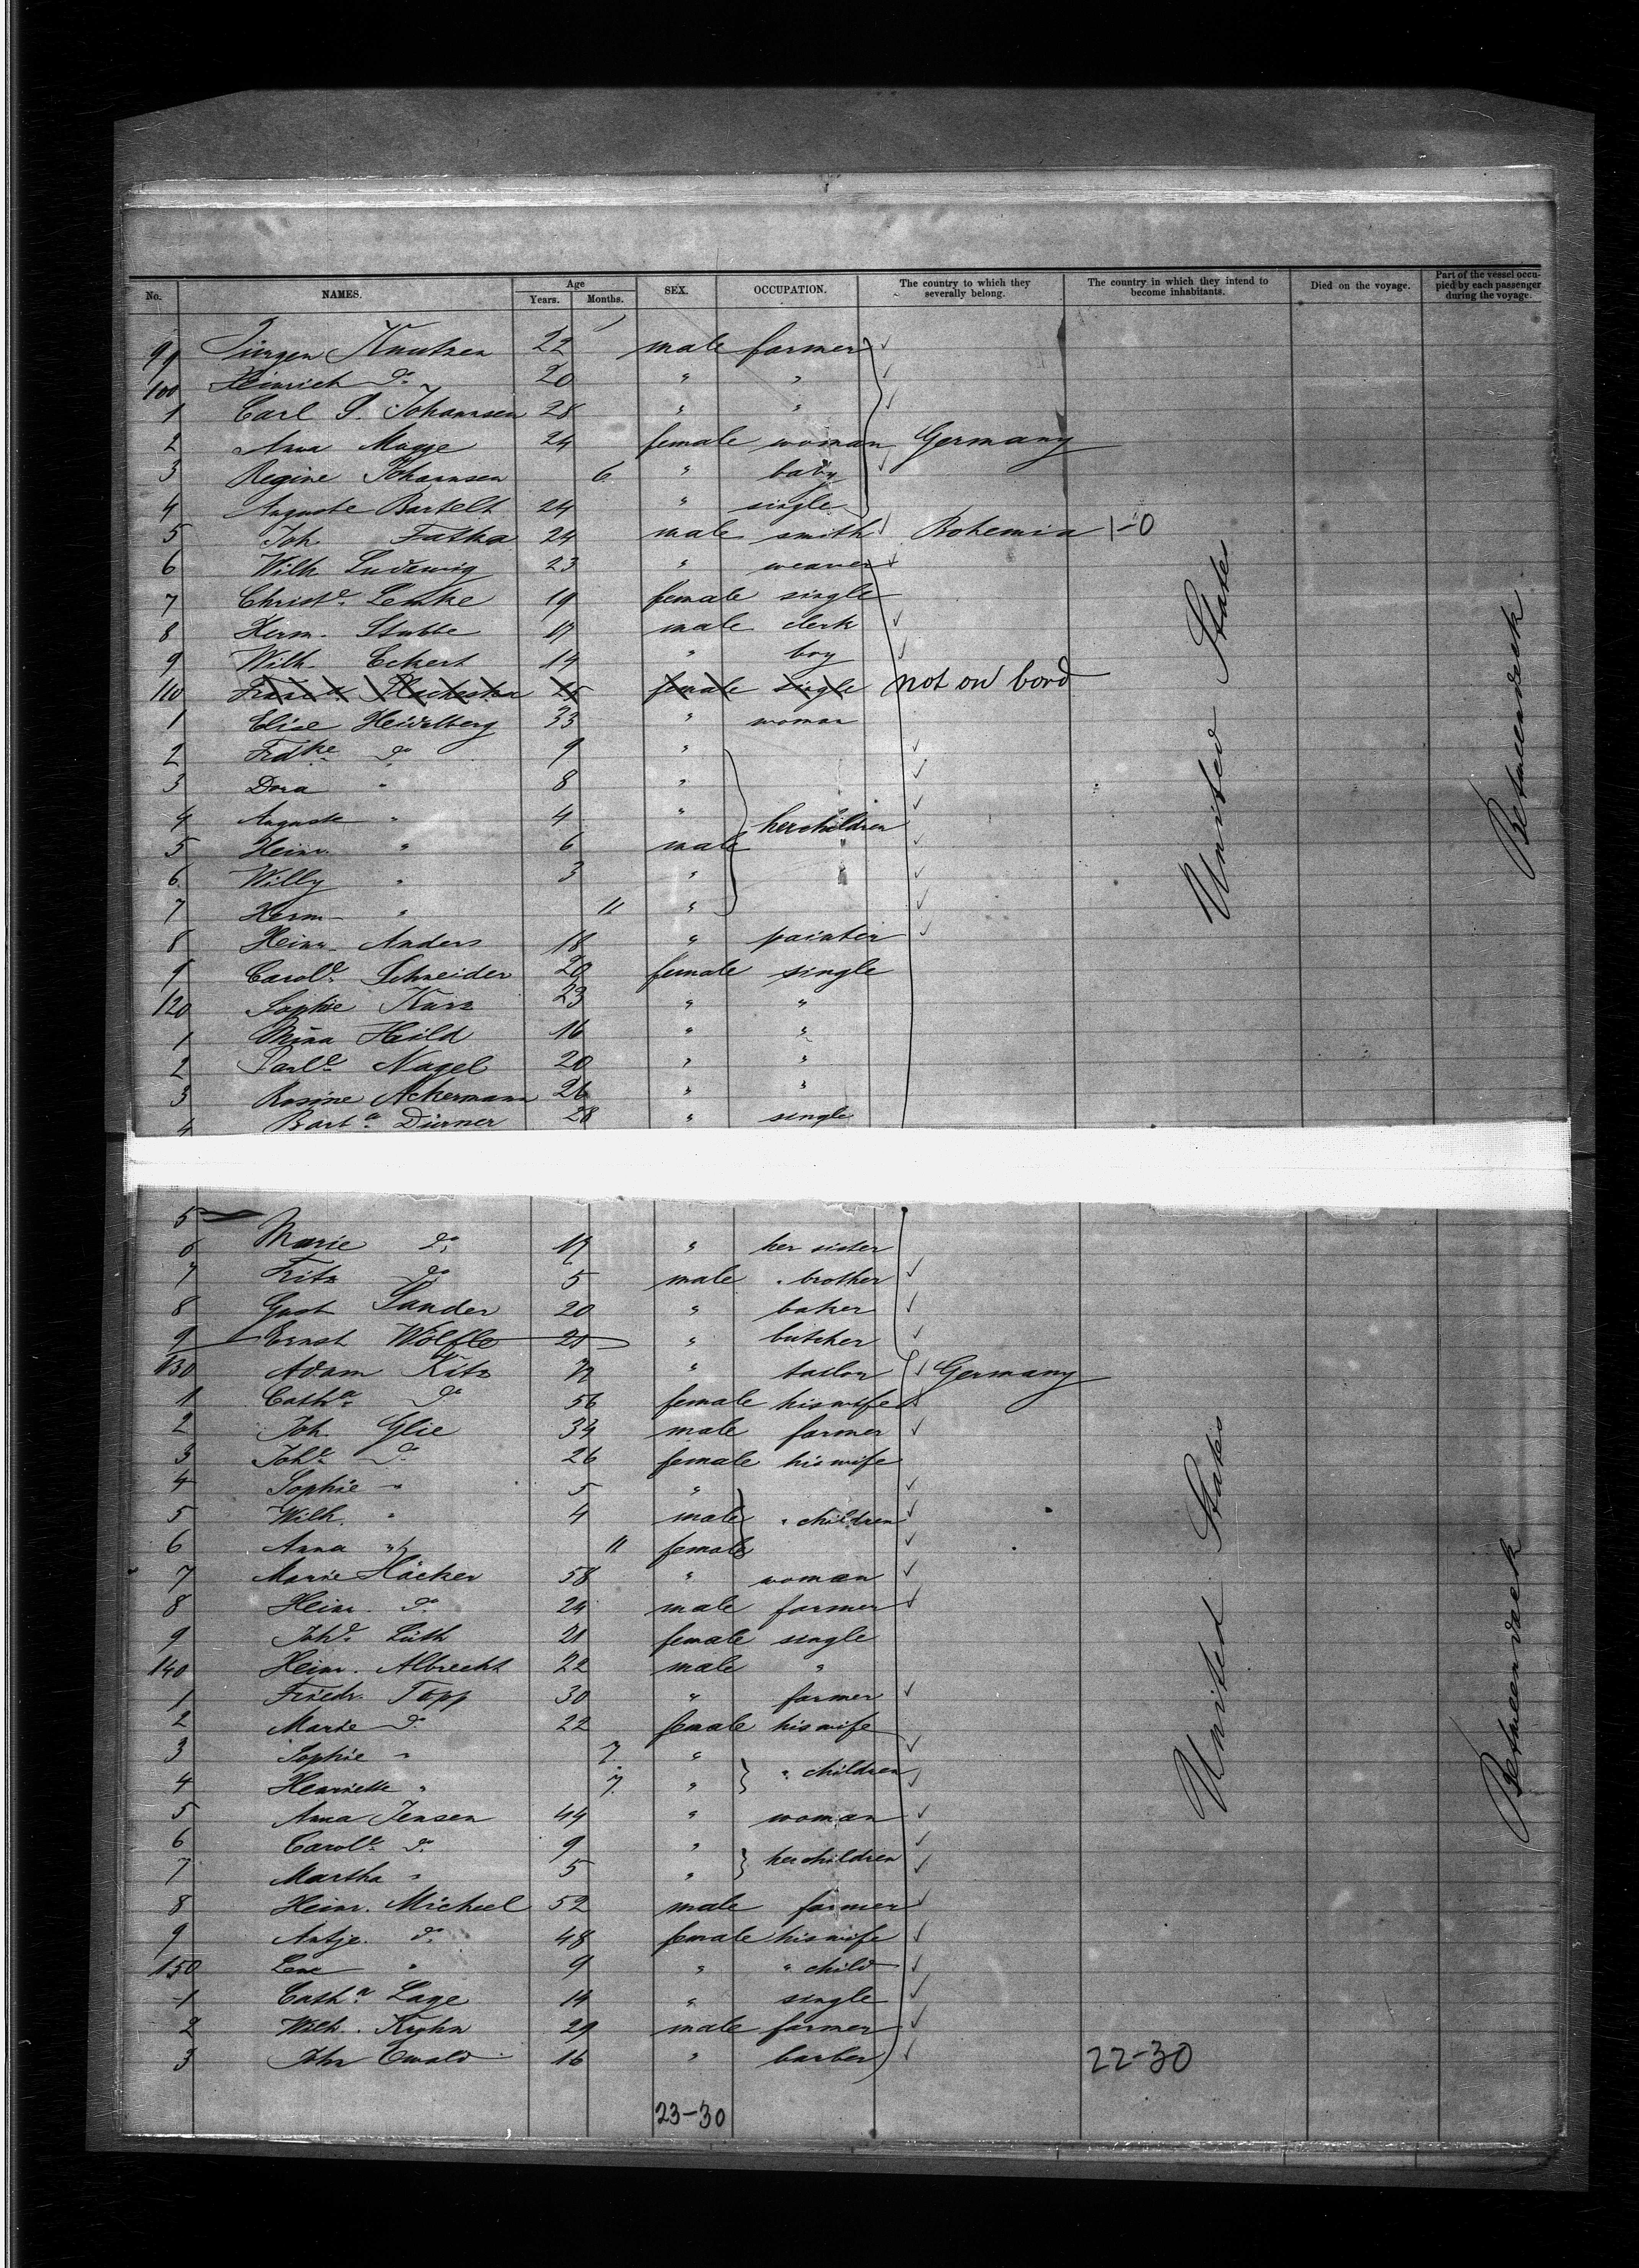 No. NAMES. Age Years. Months. SEX. OCCUPATION. The country to which they severally belong. The country in which they intend to become inhabitants. Died on the voyage. Part of the vessel occupied by each passenger during the voyage.
99 Jürgen Knutzen 22 male farmer
100 Heinrich do 20 " "
1 Carl P. Johannsen 28 " "
2 Anna Magge 24 female woman Germany
3 Regine Johannsen 6 " baby
4 Auguste Bartelt 24 " single
5 Joh. Fatka 24 male smith Bohemia 1-0
6 Wilh. Ludewig 23 " weaver
7 Christe. Lemke 19 female single
8 Herm. Stubbe 17 male clerk
9 Wilh. Eckert 14 " boy
110 25 female single not on bord
1 Elise Heidelberg 33 " woman
2 Fridke do 9 "
3 Dora " 8 "
4 Auguste " 4 " her children
5 Heinr. " 6 male "
6 Willy " 3 "
7 Herm. " 11 "
8 Heinr. Anders 18 " painter
9 Carole. Schneider 20 female single
120 Sophie Kurz 23 " "
1 Mina Heild 16 " "
2 Paule. Nagel 20 " "
3 Rosine Ackermann 26 " "
4 Barba. Dürner 28 " single
5
6 Marie do 17 " her sister
7 Fritz do 5 male " brother
8 Gust. Sander 20 " baker
9 Ernst Wölfle 21 " butcher
130 Adam Kitz " tailor Germany
1 Catha. do 56 female his wife
2 Joh. Glie 34 male farmer
3 Johe. do 26 female his wife
4 Sophie " 5 "
5 Wilh. " 4 male " children
6 Anna " 11 female
7 Marie Häcker 58 " woman
8 Heinr. do 24 male farmer
9 Johe. Lüth 21 female single
140 Heinr. Albrecht 22 male "
1 Friedr. Topp 30 " farmer
2 Marie do 22 female his wife
3 Sophie " 7 " " children
4 Henriette " 7 "
5 Anna Jensen 44 " woman
6 Carole. do 9 " her children
7 Martha " 5 "
8 Heinr. Micheel 52 male farmer
9 Antje. do 48 female his wife
150 Lene " 9 " " child
1 Catha. Lage 14 " single
2 Wilh. Kyhn 29 male farmer
3 Johs Ewald 16 " barber 22-30
23-30
United States
Betweendeck
United States
Betweendeck